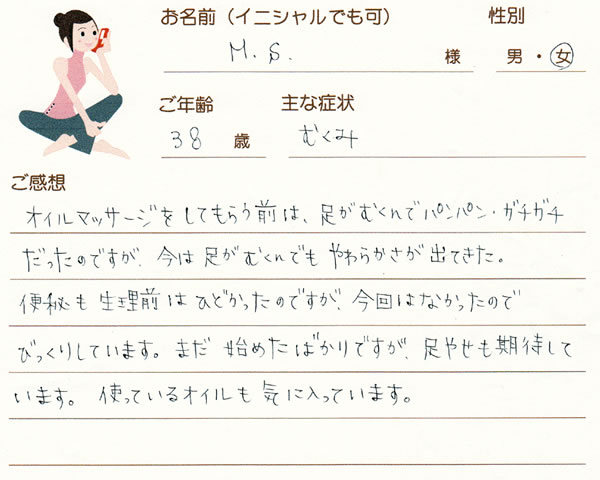 お名前（イニシャルでも可） 性別
M. S. 様 男・女
ご年齢 主な症状
38 歳 むくみ
ご感想
オイルマッサージをしてもらう前は、足がむくんでパンパン・ガチガチ
だったのですが、今は足がむくんでもやわらかさが出てきた。
便秘も生理前はひどかったのですが、今回はなかったので
びっくりしています。まだ始めたばかりですが、足やせも期待して
います。使っているオイルも気に入っています。